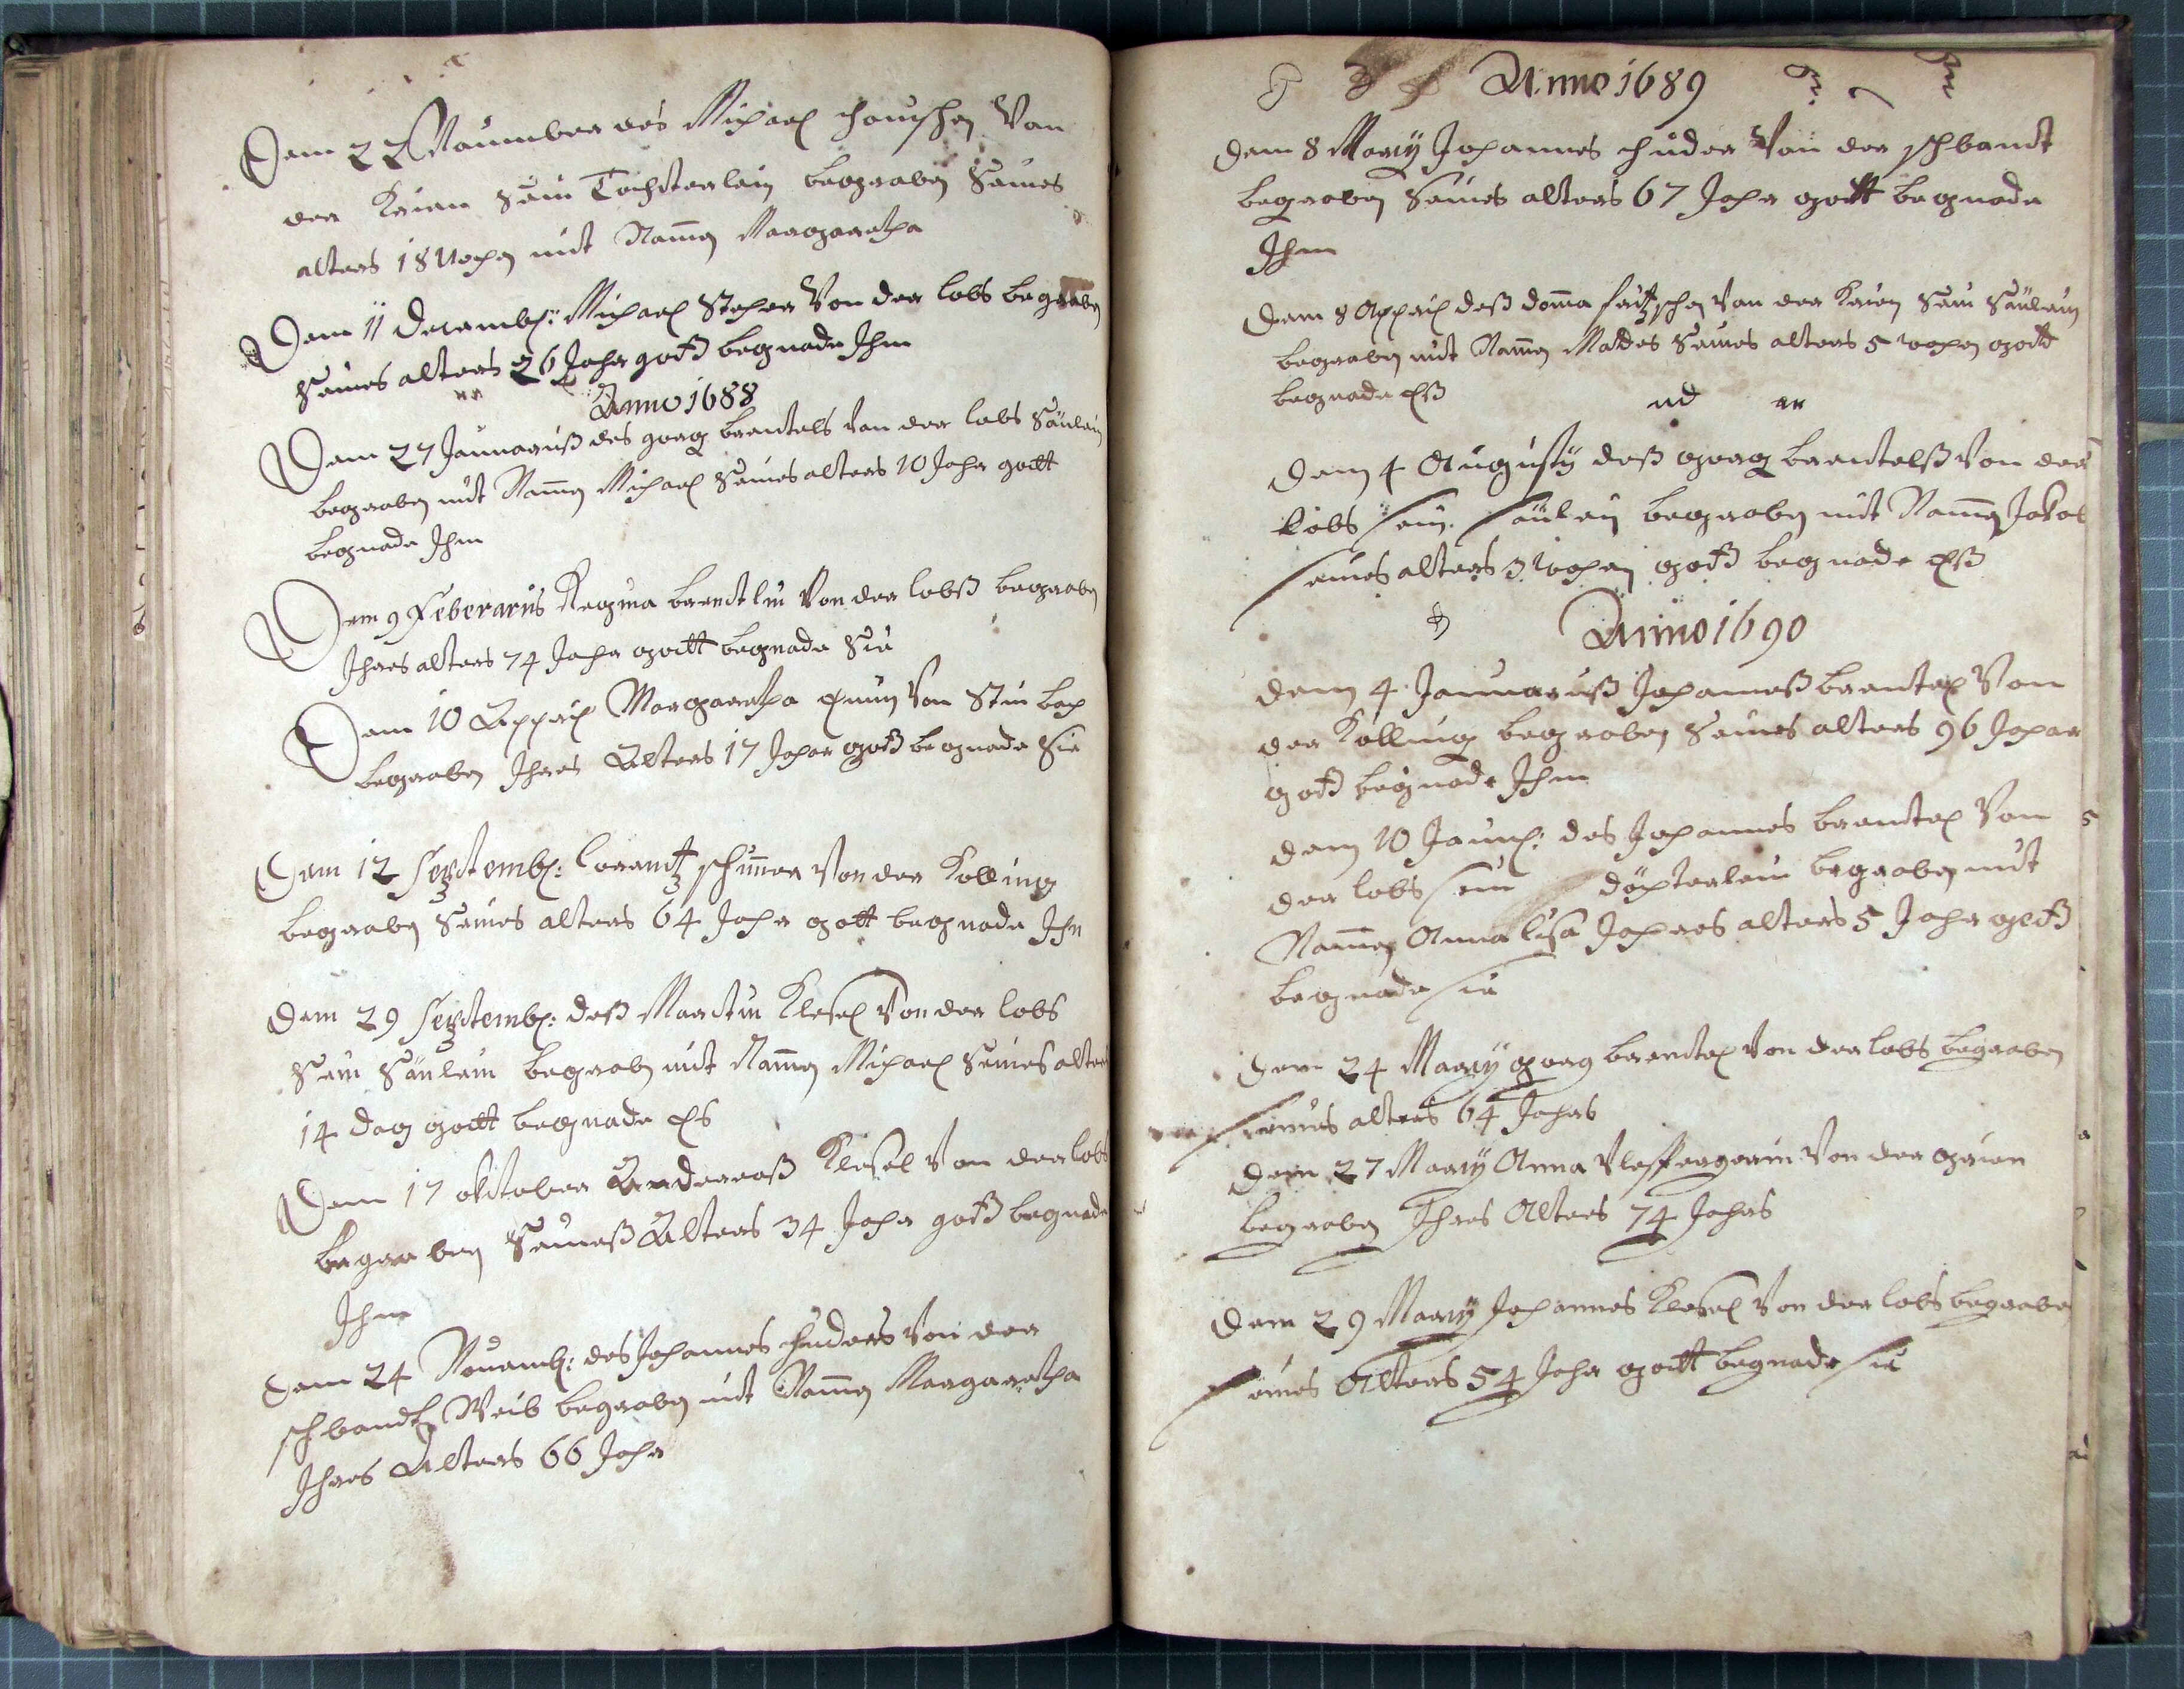 Dem 22 Nouember des Michael Von
der Krien Sein Tochterlein begraben Seines
alters 18 Wochen mit Namen Margaretha
Dem 11 Decemb: Michael Stecher Von der lobs begraben
Seines alters 26 Jahr gott begnade Ihm
Anno 1688
Dem 27 Januariuß des georg brentels Von der lobs Sönlein
begraben mit Namen Michael Seines alters 10 Jahr gott
begnade Ihm
Dem 9 Feberarius Regina brendtlin Von der lobß begraben
Ihres alters 74 Jahr gott begnade Sie
Dem 10 Appril Margaretha Von Stin bach
begraben Ihres Alters 17 Jahr gott begnade Sie
Dem 12 Septemb: lorentz schimer Von der Kolling
begraben Seines alters 64 Jahr gott begnade Ihn
Dem 29 Septemb: deß Martin Klesel Von der lobs
Sein Sönlein begraben mit Namen Michael Seines alters
14 dag gott begnade es
Dem 17 oktober Andereaß Klesel Von der lobs
begraben Seineß Alters 34 Jahr gott begnade
Ihm
Dem 24 Nouemb: des Johannes huders Von der
schbandt Weib begraben mit Namen Margaretha
Ihres Alters 66 Jahr
Anno 1689
Dem 8 Marty Johannes huder Von der schbandt
begraben Seines alters 67 Jahr gott begnade
Ihm
Dem 8 Appril deß doma fritzschen Von der Krien Sein Sönlein
begraben mit Namen Mattes Seines alters 5 wochen gott
begnade eß
Dem 4 Augusty deß georg brentelß Von der
lobs sein sönlein begraben mit Namen Jakob
seines alters 3 wochen gott begnade eß
Anno 1690
Dem 4 Januariuß Johanneß brentel Von
der Kolling begraben Seines alters 96 Jahr
gott begnade Ihm
Dem 10 Janu: des Johannes brendtel Von
der lobs sein döchterlein begraben mit
Namen Anna lisa Ihres alters 5 Jahr gott
begnade sie
Dem 24 Marty georg brendtel Von der lobs begraben
seines alters 64 Jahrs
Dem 27 Marty Anna Von der grien
begraben Ihres Alters 74 Jahrs
Dem 29 Marty Johannes Klesel Von der lobs begraben
seines Alters 54 Jahr gott begnade sie